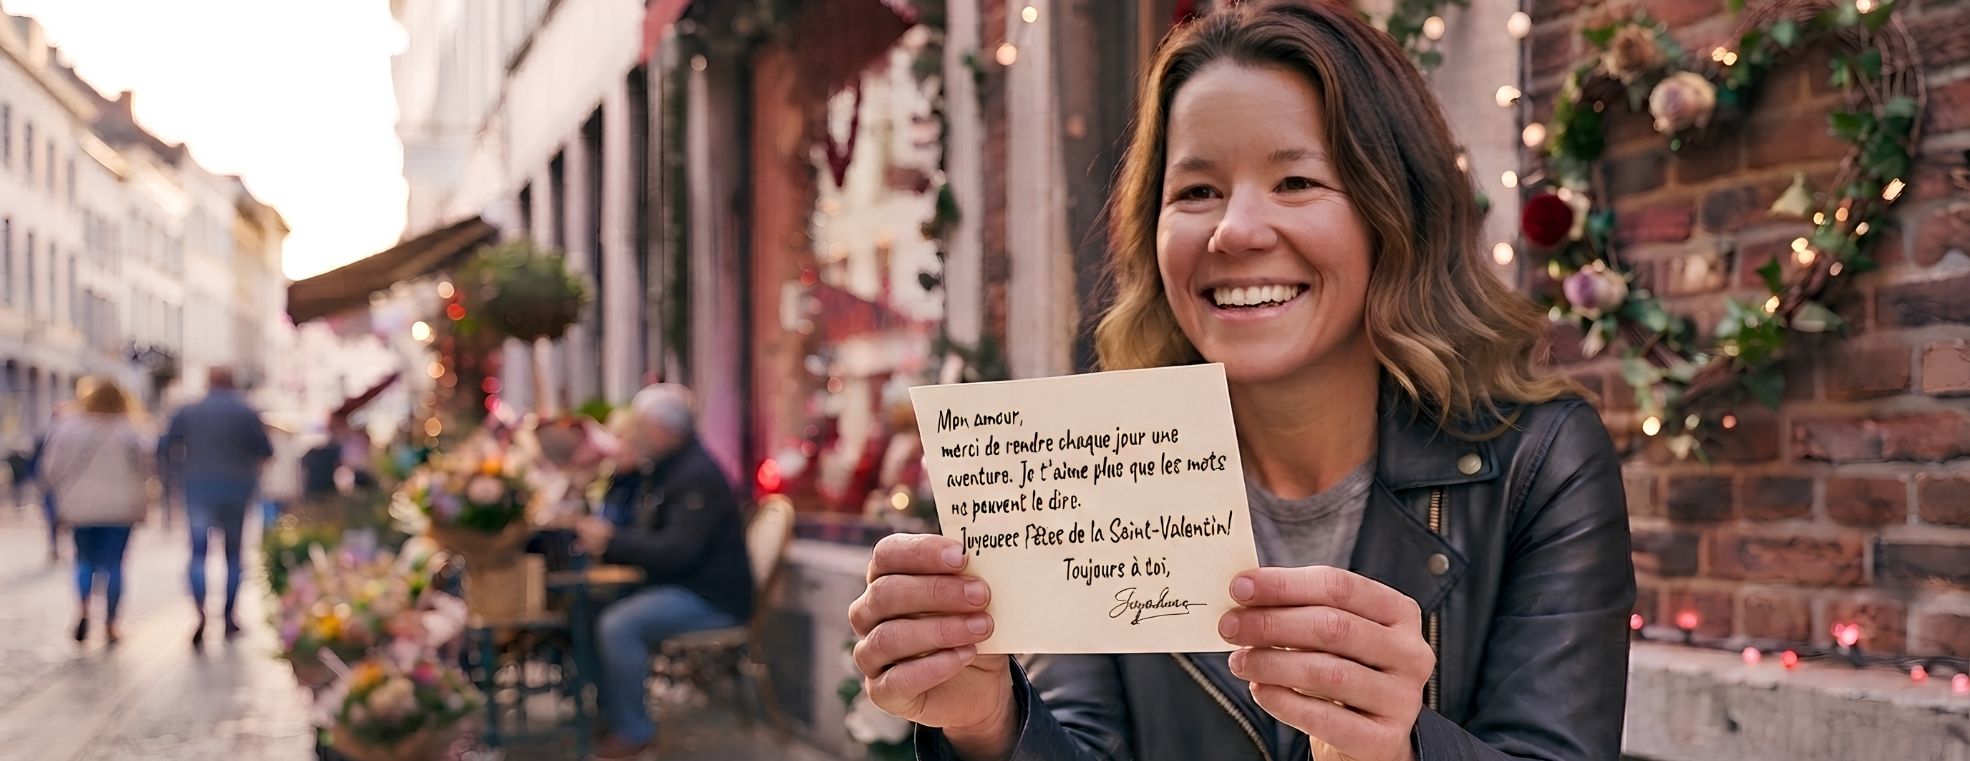 Mon amour,
merci de rendre chaque jour une
aventure. Je t'aime plus que les mots
ne peuvent le dire.
Juyeuees Fêlee de la Saint-Valentin!
Toujours à toi,